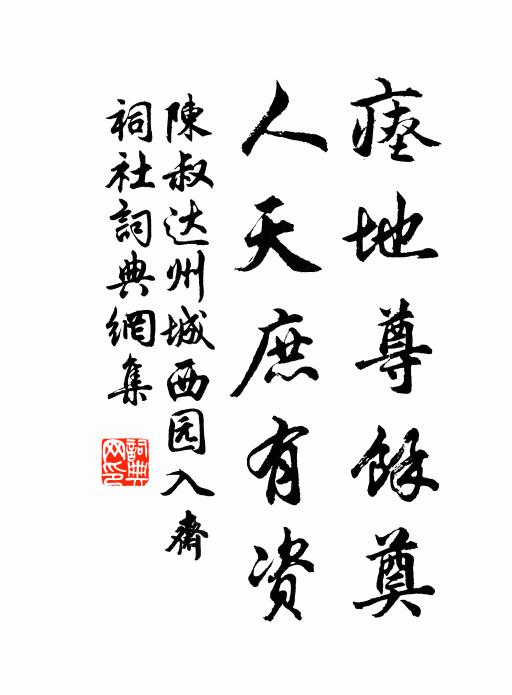 瘞地尊餘奠
人天庶有资
陳叔达州城西园入齋
祠社詞典網集
詞典网印